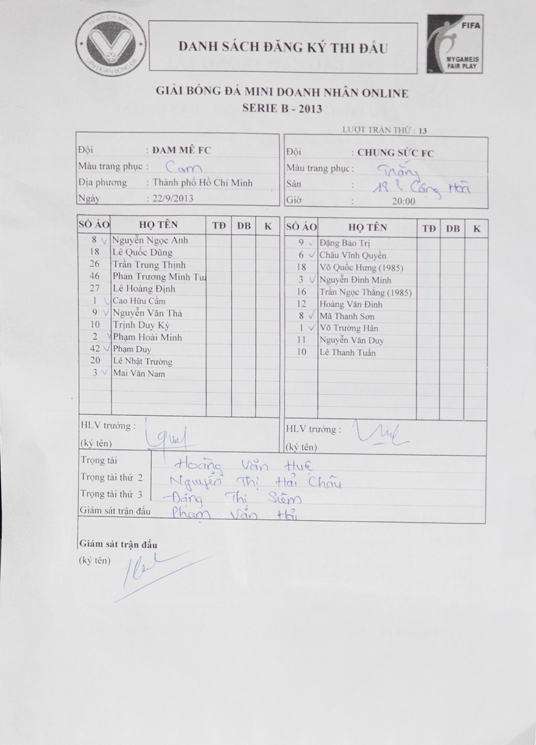 DANH SÁCH ĐĂNG KÝ THI ĐẤU
FIFA
MY GAME IS
FAIR PLAY
GIẢI BÓNG ĐÁ MINI DOANH NHÂN ONLINE
SERIE B - 2013
LƯỢT TRẬN THỨ : 13
Đội : ĐAM MÊ FC
Màu trang phục : Cam
Địa phương : Thành phố Hồ Chí Minh
Ngày : 22/9/2013
Đội : CHUNG SỨC FC
Màu trang phục : Trắng
Sân : Cộng Hòa
Giờ : 20:00
SỐ ÁO HỌ TÊN TĐ DB K
8 Nguyễn Ngọc Anh
18 Lê Quốc Dũng
26 Trần Trung Thịnh
46 Phan Trương Minh Tu
27 Lê Hoàng Định
1 Cao Hữu Cầm
9 Nguyễn Văn Thả
10 Trịnh Duy Ký
2 Phạm Hoài Minh
42 Phạm Duy
20 Lê Nhật Trường
3 Mai Văn Nam
SỐ ÁO HỌ TÊN TĐ DB K
9 Đặng Bảo Trị
6 Châu Vĩnh Quyền
18 Võ Quốc Hưng (1985)
3 Nguyễn Đình Minh
16 Trần Ngọc Thắng (1985)
12 Hoàng Văn Đinh
8 Mã Thanh Sơn
1 Võ Trường Hân
11 Nguyễn Văn Duy
10 Lê Thanh Tuấn
HLV trưởng :
(ký tên)
HLV trưởng :
(ký tên)
Trọng tài Hoàng Văn Huệ
Trọng tài thứ 2 Nguyễn Thị Hải Châu
Trọng tài thứ 3 Đặng Thị Siêm
Giám sát trận đấu Phạm Văn Hải
Giám sát trận đấu
(ký tên)